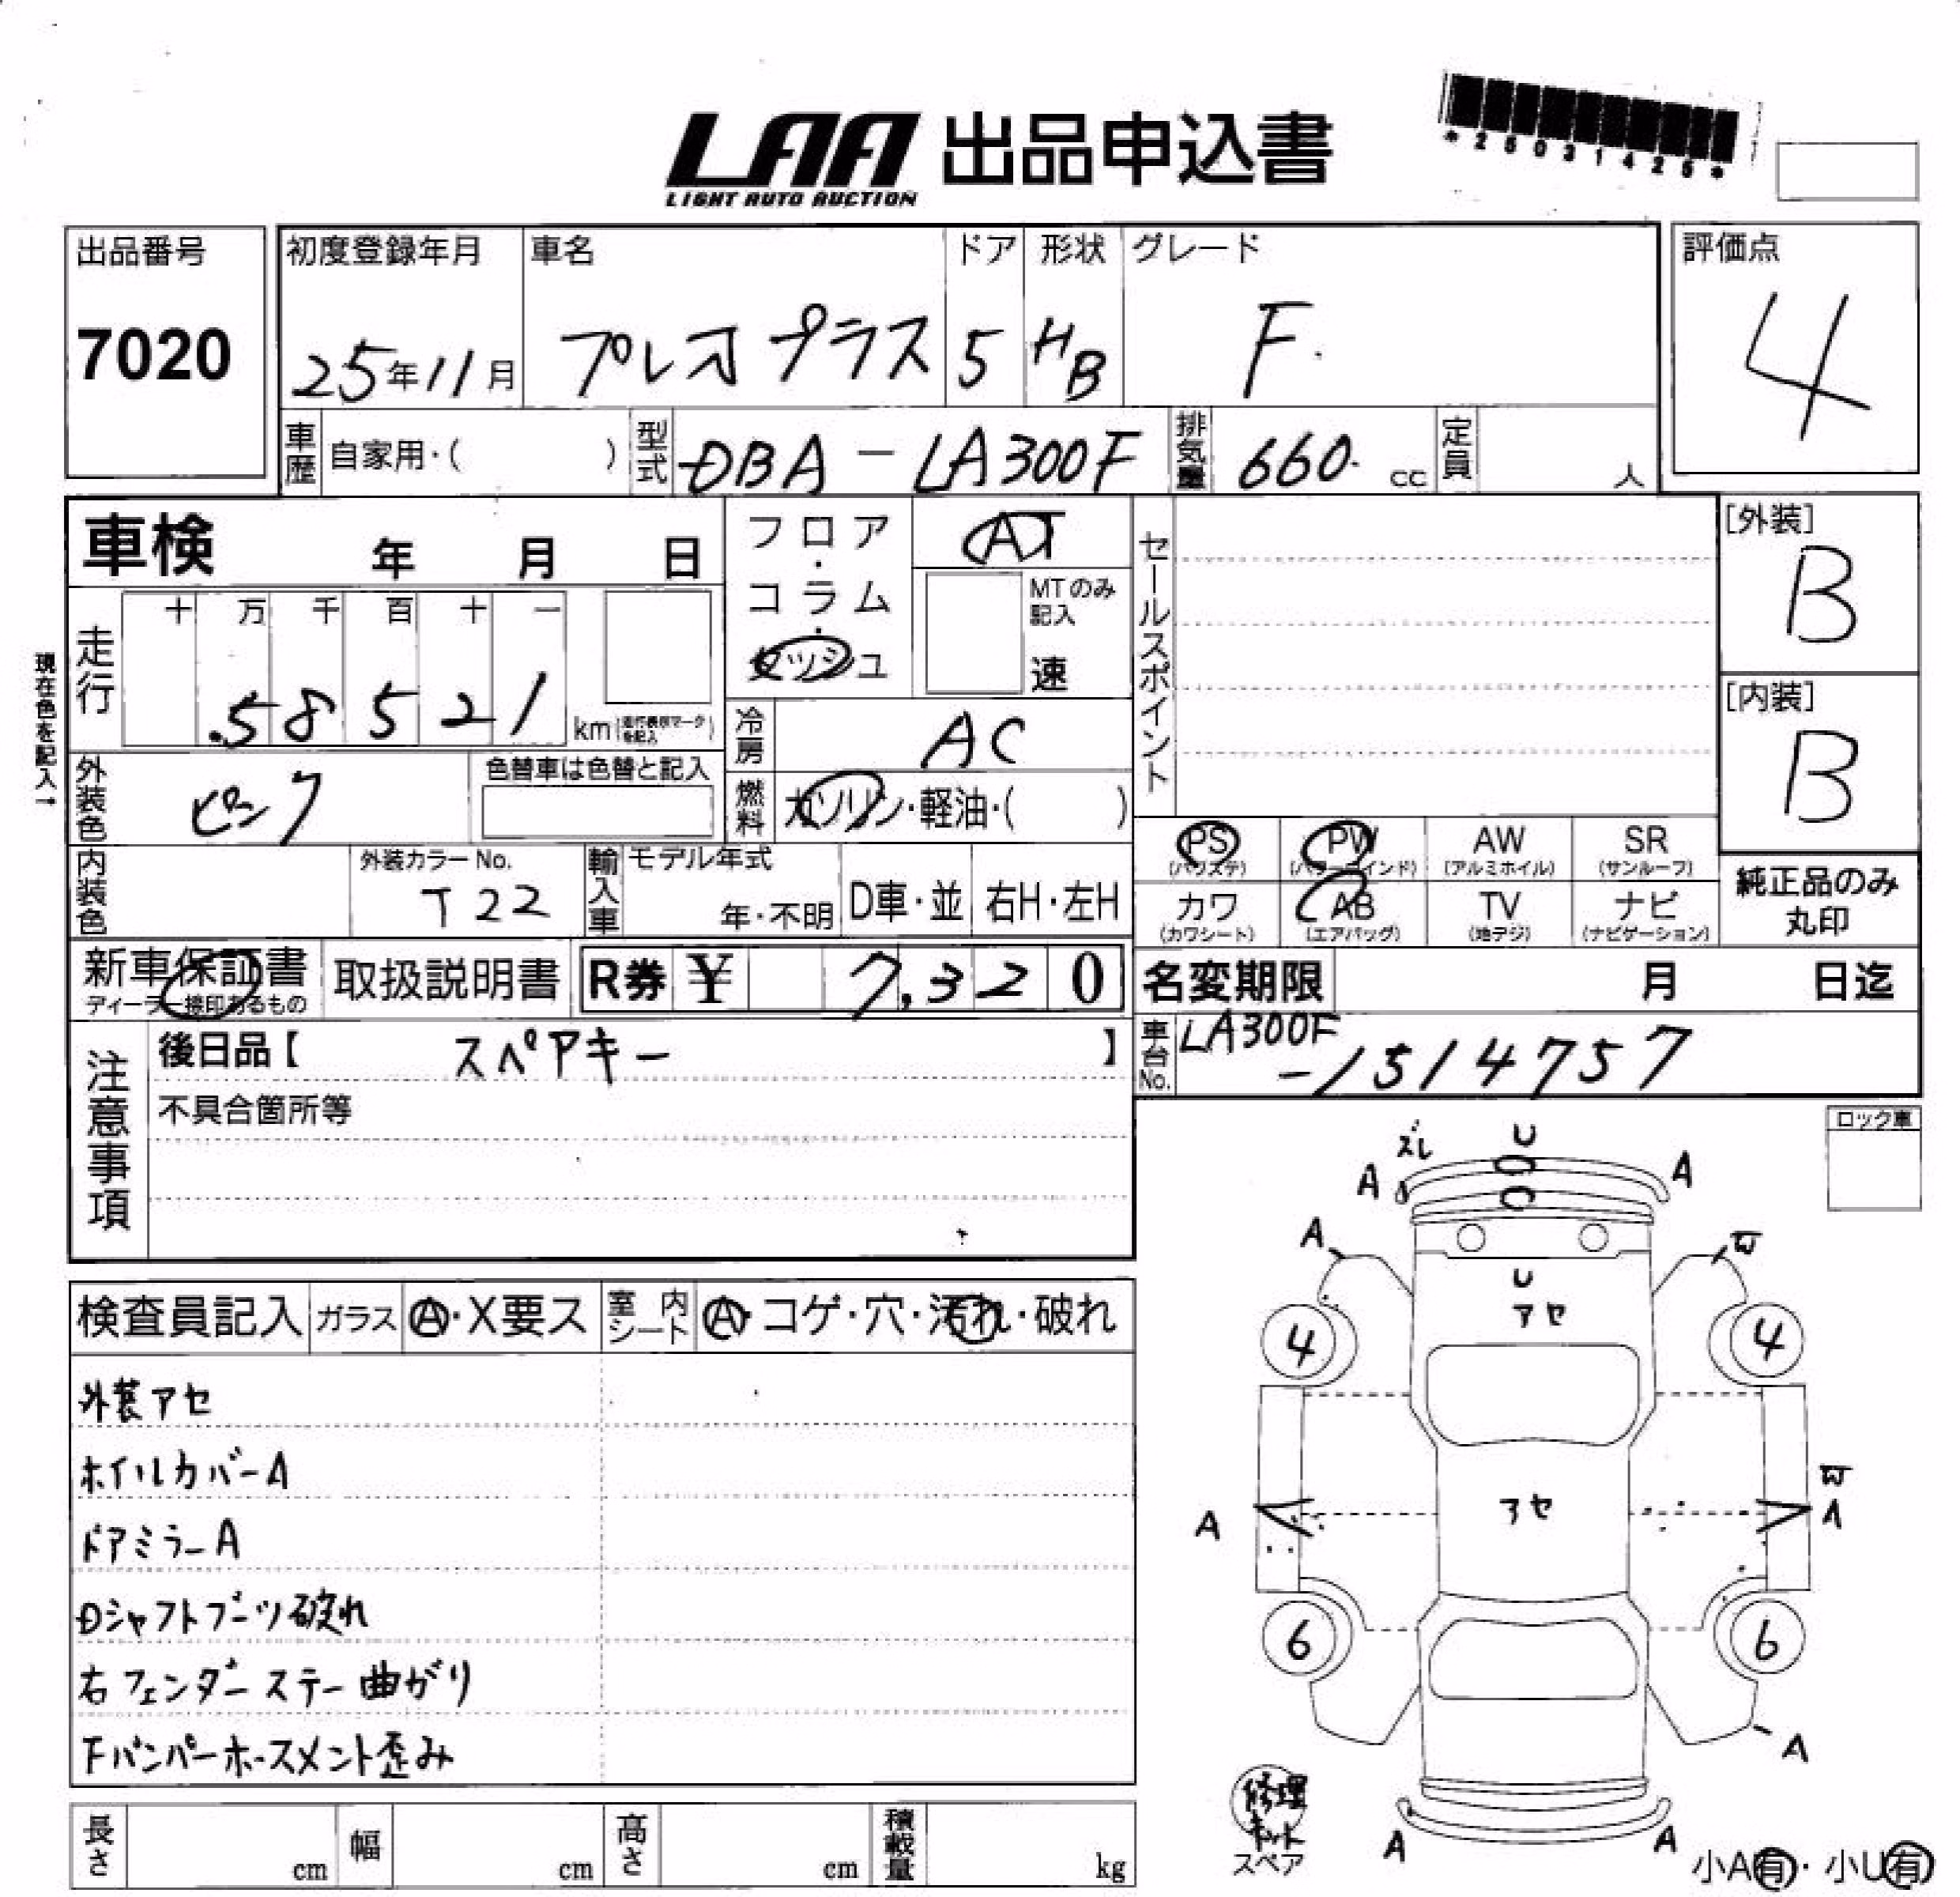 LAA 出品申込書
LIGHT AUTO AUCTION
*25031425*
出品番号
7020
初度登録年月
25年11月
車名
プレオプラス
ドア
5
形状
HB
グレード
F.
評価点
4
車歴
自家用・( )
型式
DBA-LA300F
排気量
660. cc
定員
人
車検 年 月 日
フロア・コラム・センシュ
AT
MTのみ記入
速
セールスポイント
[外装]
B
現在色を記入→
走行
十 万 千 百 十 一
58521
km
[内装]
B
冷房
AC
外装色
ピンク
色替車は色替と記入
燃料
ガソリン・軽油・( )
PS
(パワステ)
PW
(パワーウインド)
AW
(アルミホイル)
SR
(サンルーフ)
カワ
(カワシート)
AB
(エアバッグ)
TV
(地デジ)
ナビ
(ナビゲーション)
純正品のみ
丸印
内装色
外装カラーNo.
T22
輸入車
モデル年式
年・不明
D車・並
右H・左H
新車保証書
ディーラー捺印あるもの
取扱説明書
R券 ¥ 7,320
名変期限 月 日迄
注意事項
後日品【 スペアキー 】
車台No.
LA300F
-1514757
不具合箇所等
ロック車
ズレ
U
A
A
A
W
U
アセ
4
4
W
A
アセ
A
6
6
A
A
A
検査員記入
ガラス
A・X要ス
室内シート
A・コゲ・穴・汚れ・破れ
外装アセ
ホイルカバーA
ドアミラーA
Dシャフトブーツ破れ
右フェンダーステー曲がり
Fバンパーホースメント歪み
修理キット
スペア
長さ cm
幅 cm
高さ cm
積載量 kg
小A有・小U有